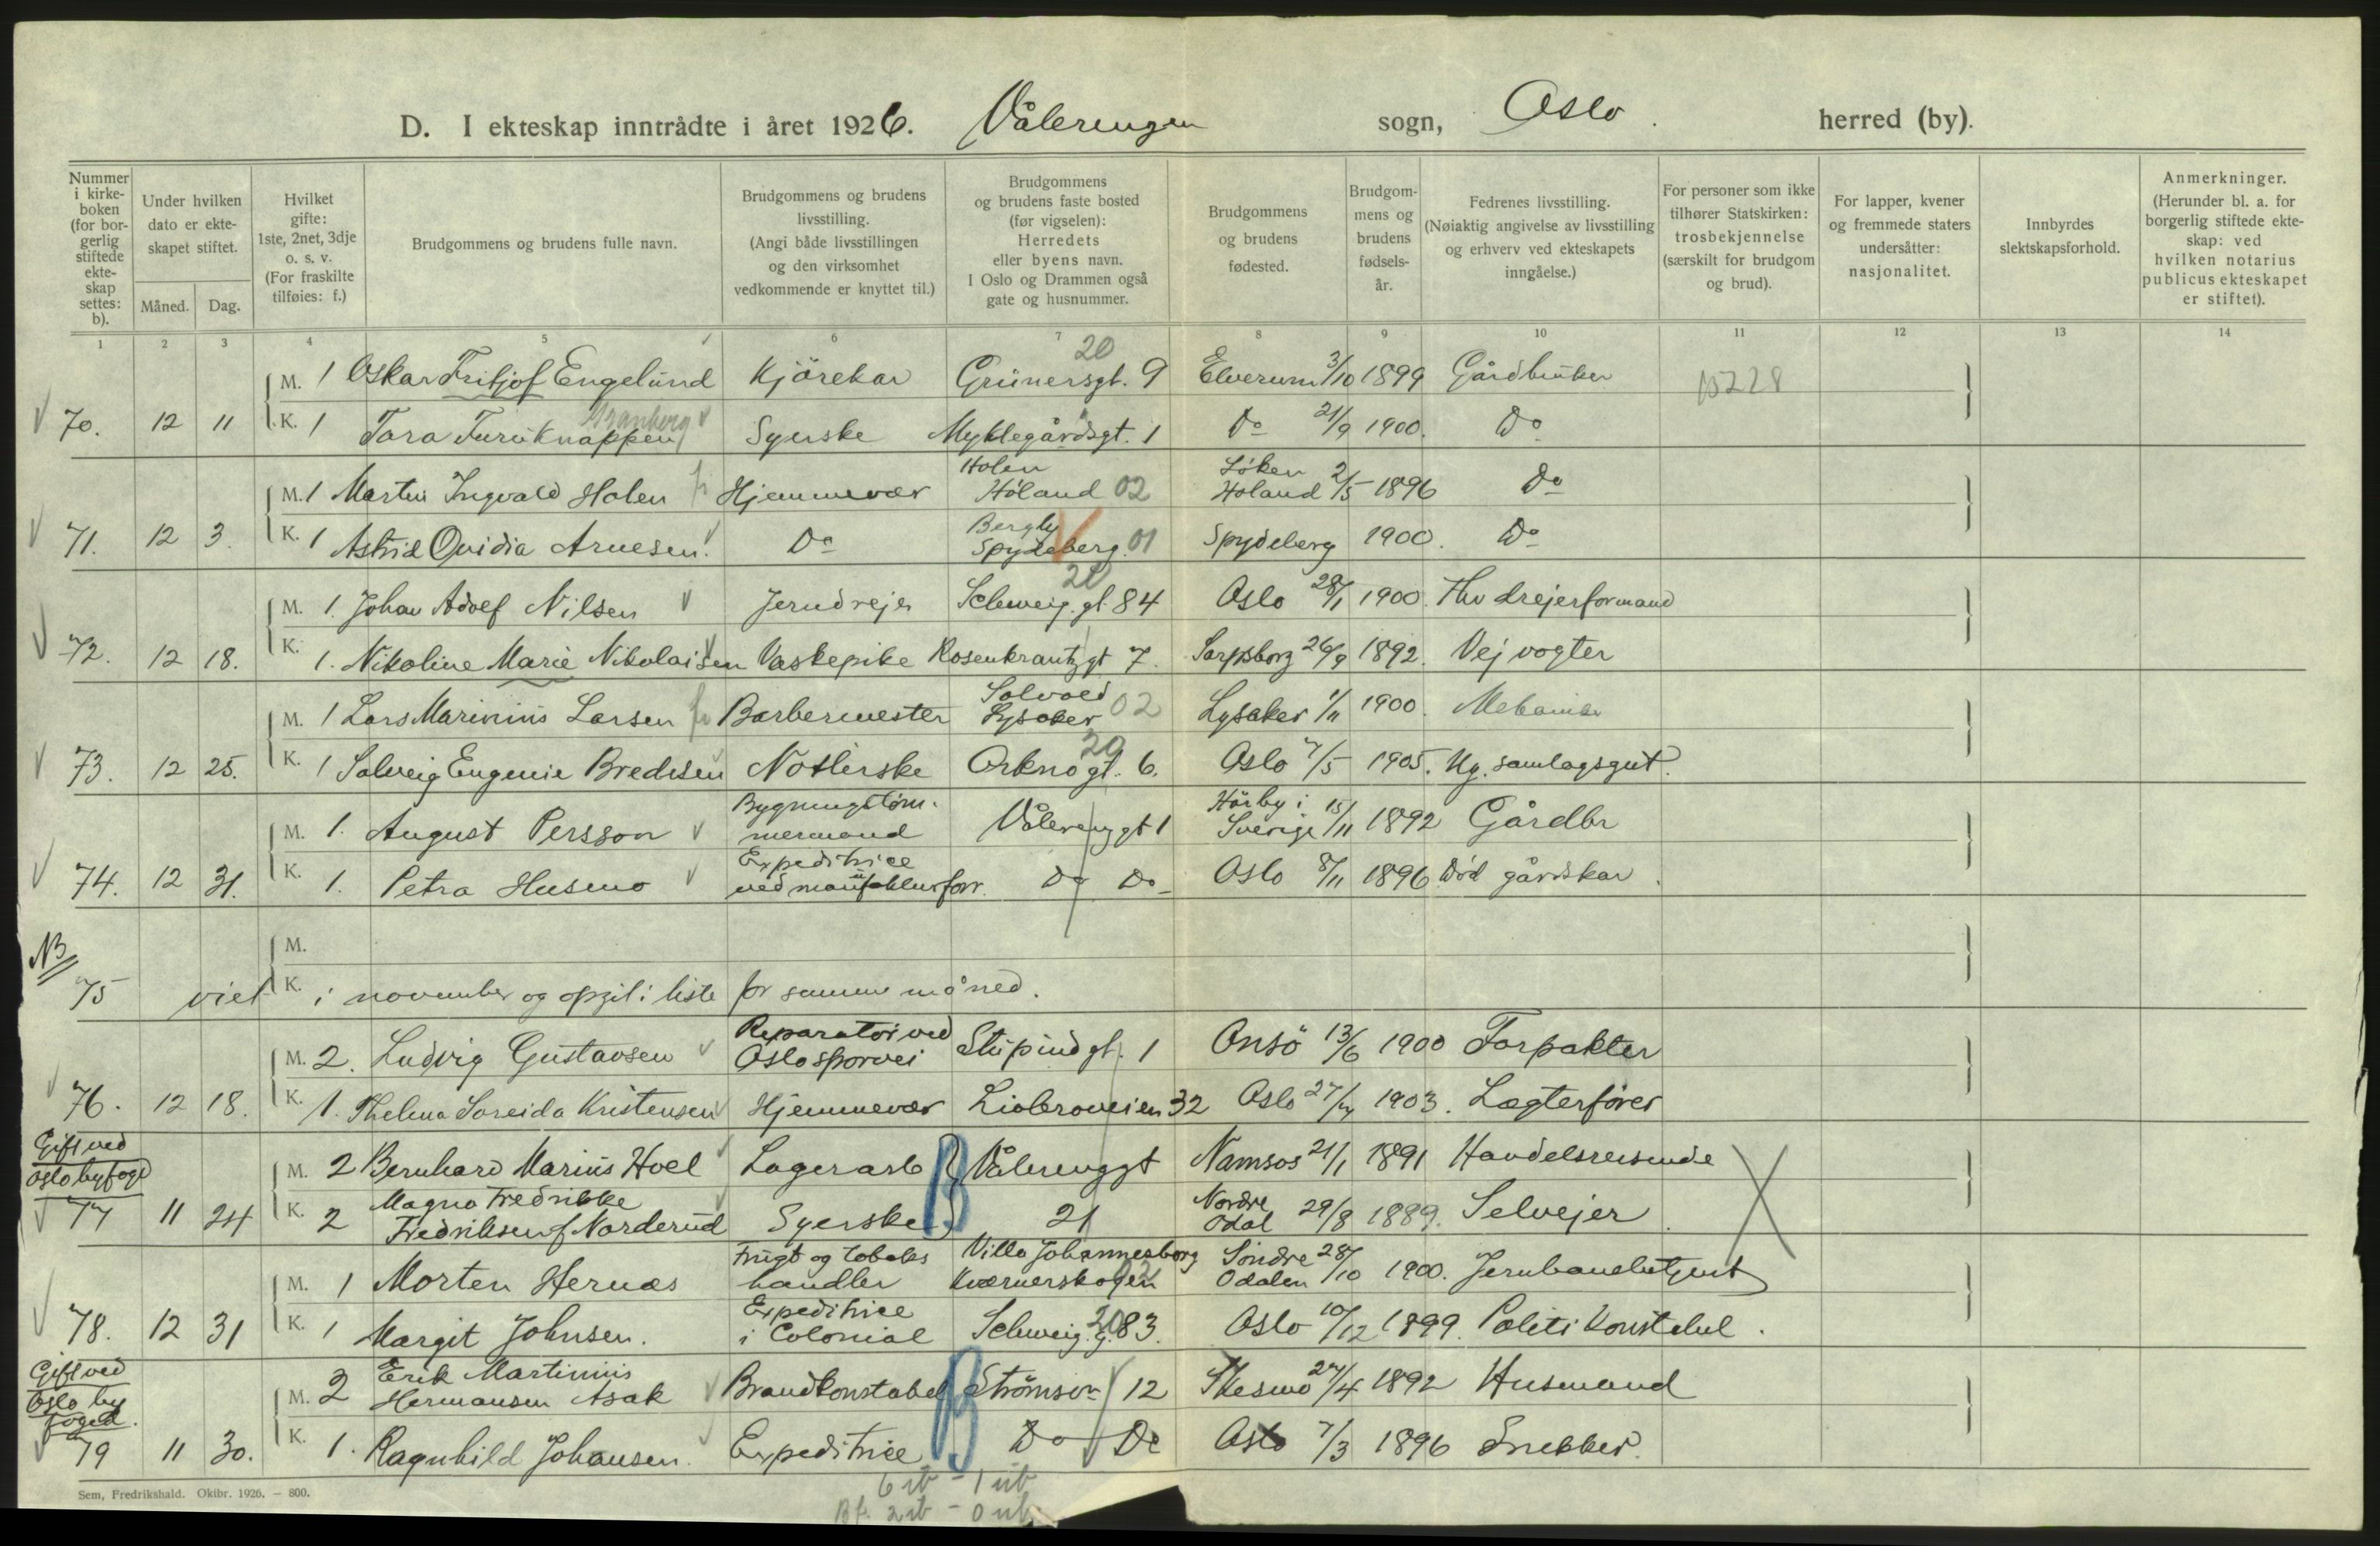 D. I ekteskap inntrådte i året 1926. Våleringen sogn, Oslo herred (by).
Nummer i kirke-boken (for bor-gerlig stiftede ekte-skap settes: b).
Under hvilken dato er ekte-skapet stiftet.
Måned. Dag.
Hvilket gifte: 1ste, 2net, 3dje o. s. v. (For fraskilte tilføies: f.)
Brudgommens og brudens fulle navn.
Brudgommens og brudens livsstilling. (Angi både livsstillingen og den virksomhet vedkommende er knyttet til.)
Brudgommens og brudens faste bosted (før vigselen): Herredets eller byens navn. I Oslo og Drammen også gate og husnummer.
Brudgommens og brudens fødested.
Brudgom-mens og brudens fødsels-år.
Fedrenes livsstilling. (Nøiaktig angivelse av livsstilling og erhverv ved ekteskapets inngåelse.)
For personer som ikke tilhører Statskirken: trosbekjennelse (særskilt for brudgom og brud).
For lapper, kvener og fremmede staters undersåtter: nasjonalitet.
Innbyrdes slektskapsforhold.
Anmerkninger. (Herunder bl. a. for borgerlig stiftede ekte-skap: ved hvilken notarius publicus ekteskapet er stiftet).
1 2 3 4 5 6 7 8 9 10 11 12 13 14
20
M. 1 Oskar Fritjof Engelund Kjörekar Grünersgt. 9 Elverum 3/10 1899 Gårdbruker
Granberg
70. 12 11 K. 1 Tora Furuknappen Syerske Myklegårdsgt. 1 Do 21/9 1900. Do
Holen Löken
M. 1 Martin Ingvald Holen Hjemmevær Höland 02 Höland 2/5 1896 Do
Bergly
71. 12 3. K. 1 Astrid Ovidia Arnesen. Do Spydeberg. 01 Spydeberg 1900. Do
20
M. 1. Johan Adolf Nilsen Jerndrejer Schweig. gt. 84 Oslo 28/1 1900. Hv drejerformand
72. 12 18. K. 1. Nikoline Marie Nikolaisen Vaskepike Rosenkrantzgt 7. Sarpsborg 26/9 1892. Vejvogter
Solvold
M. 1 Lars Marinius Larsen Barbermester Lysaker 02 Lysaker 1/11 1900. Mekaniker
20
73. 12 25. K. 1 Solveig Eugenie Bredesen Nötlerske Orknögt. 6. 	Oslo 7/5 1905. Ug. samlagsgut.
Bygningstöm- Hörby i
M. 1. August Persson mermand Vålerenggt 1 Sverige 15/11 1892 Gårdbr
Expeditrice
74. 12 31. K. 1. Petra Husmo ved manufakturforr. Do Do Oslo 8/11 1896 Död gårdskar.
NB
M.
75 viet K. i november og opgit i liste for samme måned.
Reparatör ved
M. 2. Ludvig Gustavsen Oslo sporvei Stupindgt. 1 Onsö 13/6 1900 Forpakter
76. 12 18. K. 1. Thelma Soreida Kristensen Hjemmevær Liabroveien 32 Oslo 1903. Lægterförer
Gift ved
Oslo byfogd M. 2 Bernhard Marius Hoel Lagerarb B Vålerenggt Namsos 21/1 1891 Handelsreisende
Magna Fredrikke Nordre
77 11 24 K. 2 Fredriksen f Norderud Syerske 21 Odal 29/8 1889. Selvejer.
Frugt og tobaks Villa Johannesborg Söndre
M. 1 Morten Hernæs handler Kværnerskogen 02 Odalen 28/10 1900. Jernbanebetjent
Expeditrice 20
78. 12 31 K. 1 Margit Johnsen. i Colonial Schweig. g. 83. Oslo 10/12 1899. Politikonstabel.
Gift ved Erik Martinius
Oslo by M. 2 Hermansen Asak Brandkonstabel B Strömsv 12 Skesmo 27/4 1892 Husmand
foged.
79 11 30. K. 1. Ragnhild Johansen. Expeditrice Do Do Oslo 7/3 1896 Snekker.
Sem, Fredrikshald. Oktbr. 1926. – 800.